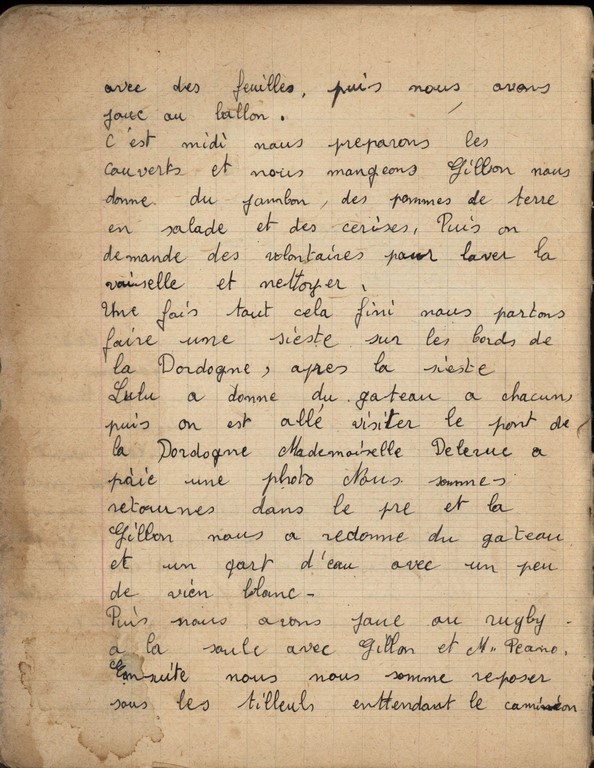 avec des feuilles, puis nous avons
joué au ballon.
C'est midi nous preparons les
couverts et nous mangeons Gillon nous
donne du jambon, des pommes de terre
en salade et des cerises, Puis on
demande des volontaires pour laver la
vaiselle et nettoyer,
Une fois tout cela fini nous partons
faire une sieste sur les bords de
la Dordogne, apres la sieste
Lulu a donne du gateau a chacuns
puis on est allé visiter le pont de
la Dordogne Mademoiselle Delerue a
prie une photo Nous sommes
retournes dans le pre et la
Gillon nous a redonne du gateau
et un qart d'eau avec un peu
de vien blanc -
Puis nous avons joue au rugby
a la soule avec Gillon et Mr Peano.
Ensuite nous nous somme reposer
sous les tilleuls enttendant le camion